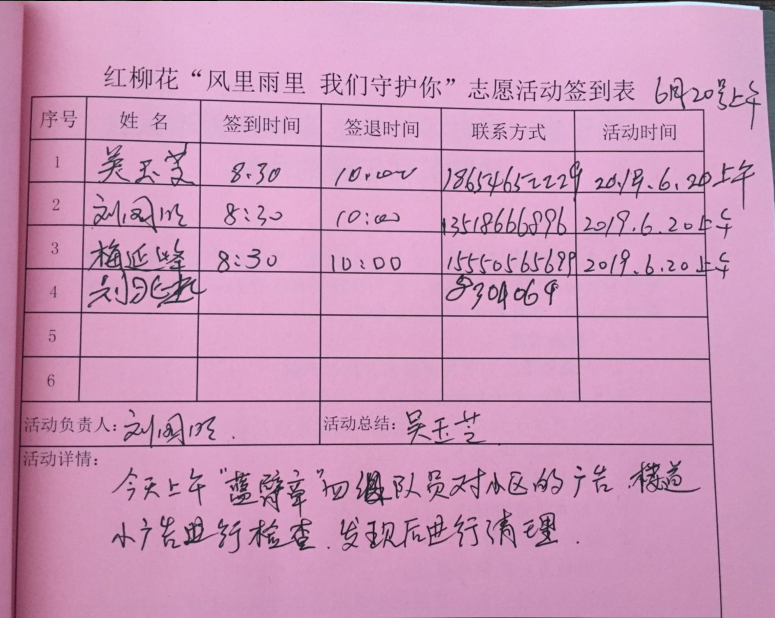 红柳花“风里雨里 我们守护你”志愿活动签到表 6月20号上午
序号 姓 名 签到时间 签退时间 联系方式 活动时间
1 吴玉芝 8.30 10.00 18654652229 2019.6.20上午
2 刘国顺 8:30 10:00 13518666896 2019.6.20上午
3 梅延峰 8:30 10:00 15550565699 2019.6.20上午
4 8304064
5
6
活动负责人: 刘国顺. 活动总结: 吴玉芝
活动详情:
今天上午“蓝臂章”四组队员对小区的广告.楼道
小广告进行检查.发现后进行清理.